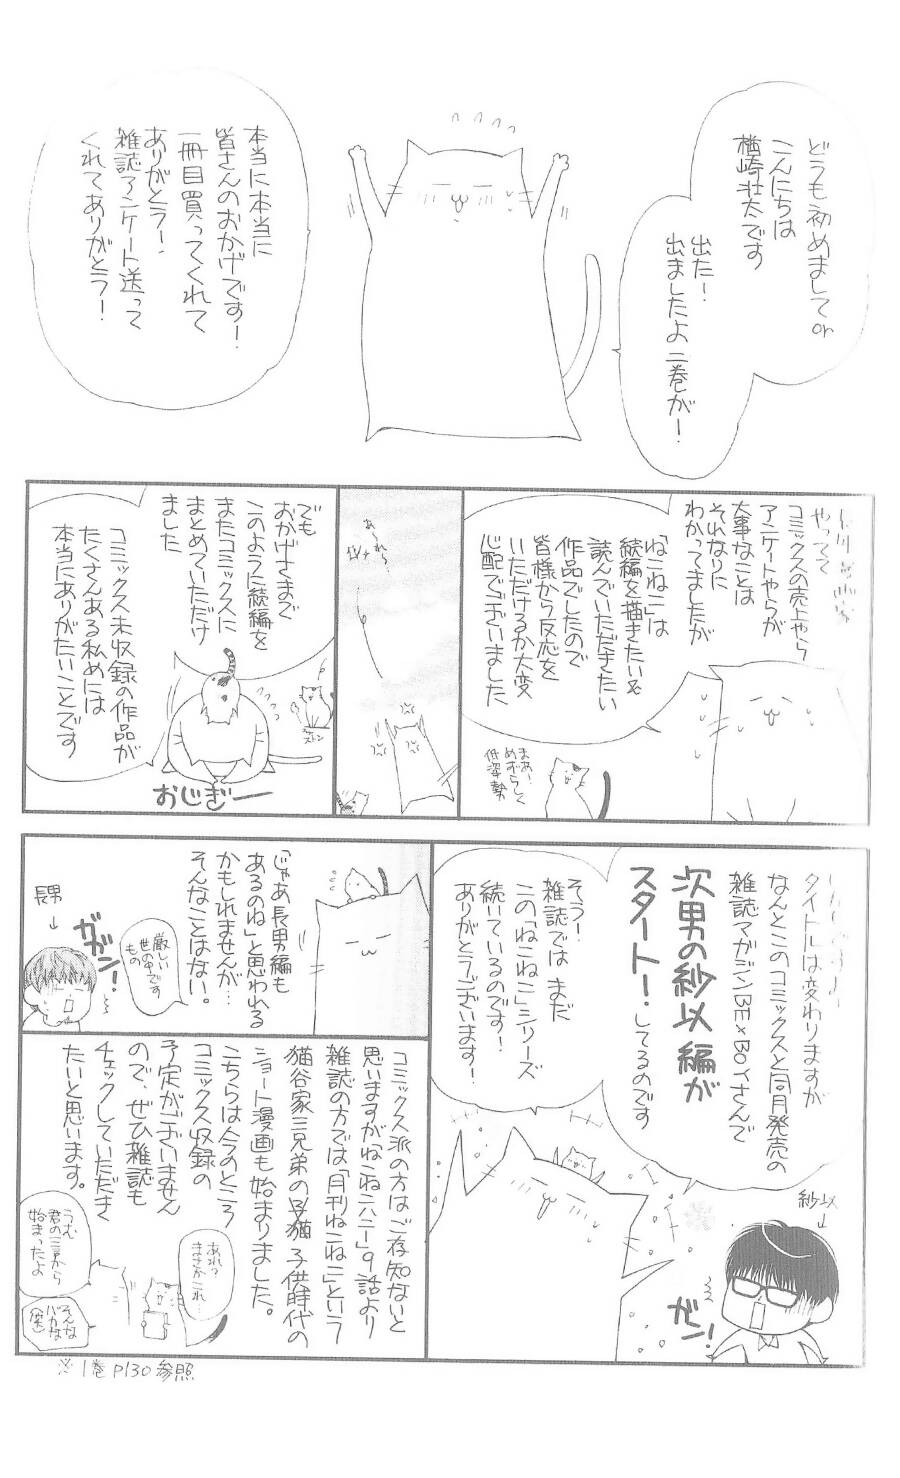 どうも初めましてor
こんにちは
楢崎壮太です
出た！
出ましたよ二巻が！
本当に本当に
皆さんのおかげです！
一冊目買ってくれて
ありがとう！
雑誌アンケート送って
くれてありがとう！
やってて
コミックスの売上やら
アンケートやらが
大事なことは
それなりに
わかってましたが
「ねこねこ」は
続編を描きたい&
読んでいただきたい
作品でしたので
皆様から反応を
いただけるか大変
心配でございました
まあ！
めずらしく
低姿勢
あ、られ
でも
おかげさまで
このように続編を
またコミックスに
まとめていただけ
ました
ストン
おじぎー
コミックス未収録の作品が
たくさんある私めには
本当にありがたいことです
タイトルは変わりますが
なんとこのコミックスと同月発売の
雑誌マガジンBE×BOYさんで
次男の紗以編が
スタート！してるのです
そう！
雑誌では まだ
この「ねこねこ」シリーズ
続いているのです！
ありがとうございます！
紗以
ガン！
「じゃあ長男編も
あるのね」と思われる
かもしれませんが…
そんなことはない。
厳しい
世の中です
もの
長男
ガガン！
コミックス派の方はご存知ないと
思いますが「ねこねこハニー」9話より
雑誌の方では「月刊ねこねこ」という
猫谷家三兄弟の子猫子供時代の
ショート漫画も始まりました。
こちらは今のところ
コミックス収録の
予定がございません
ので、ぜひ雑誌も
チェックしていただき
たいと思います。
あれ？
まさかこれ…
うむ
君の一言から
始まったよ
そんな
バカな
(笑)
※1巻P130参照